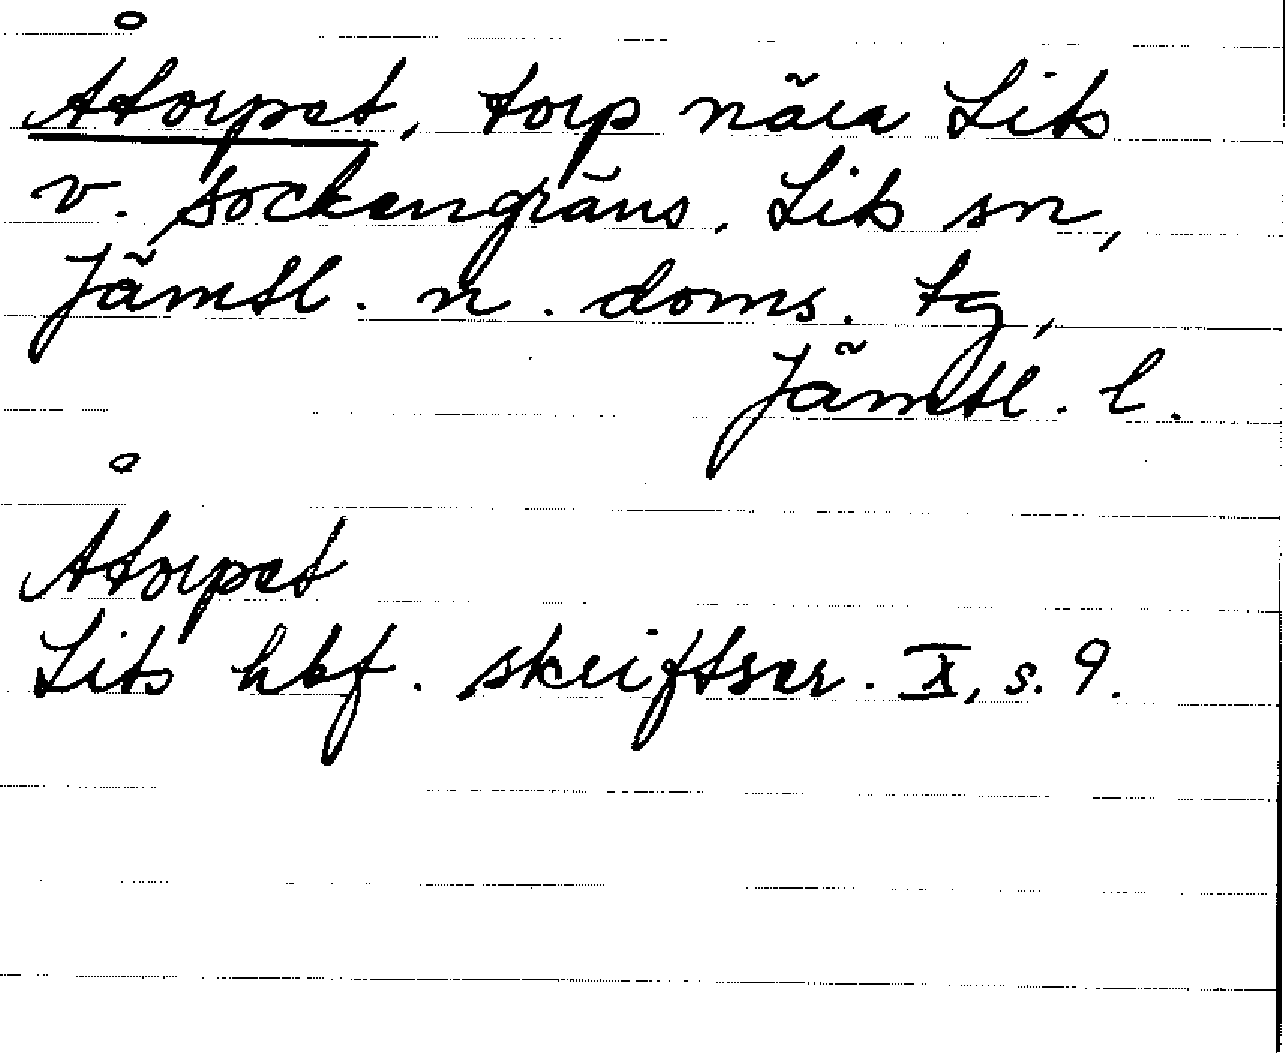 Åtorpet, torp nära Lits
v. sockengräns. Lits sn,
Jämtl. n. doms. tg,
Jämtl. l.
Åtorpet
Lits hbf. skriftser. X, s. 9.